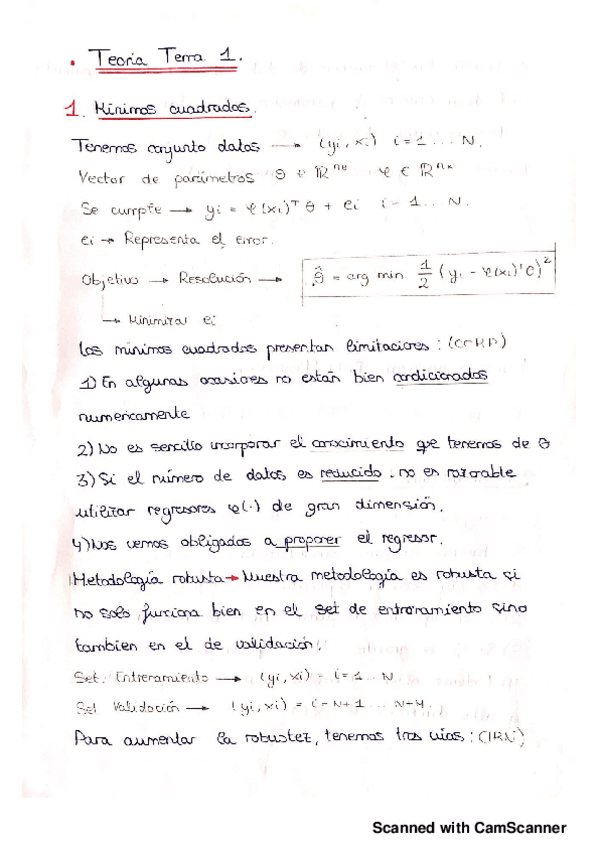 • Teoría Tema 1.
1. Mínimos cuadrados.
Tenemos conjunto datos → (yi, xi) i=1 ... N.
Vector de parámetros θ ∈ ℝ^nθ φ ∈ ℝ^nx
Se cumple → yi = φ(xi)^T θ + ei i=1 ... N.
ei → Representa el error.
Objetivo → Resolución → θ̂ = arg min 1/2 (yi - φ(xi)'θ)^2
→ Minimizar ei
Los mínimos cuadrados presentan limitaciones:
1) En algunas ocasiones no están bien condicionados
numericamente
2) No es sencillo incorporar el conocimiento que tenemos de θ
3) Si el número de datos es reducido. no es razonable
utilizar regresores φ(·) de gran dimensión.
4) Nos vemos obligados a proponer el regresor.
Metodología robusta → Nuestra metodología es robusta si
no solo funciona bien en el set de entrenamiento sino
tambien en el de validación.
Set. Entrenamiento → (yi, xi) = i=1 ... N
Set Validación → (yi, xi) = i=N+1 ...
Para aumentar la robustez, tenemos tres vías: (IRN)
Scanned with CamScanner